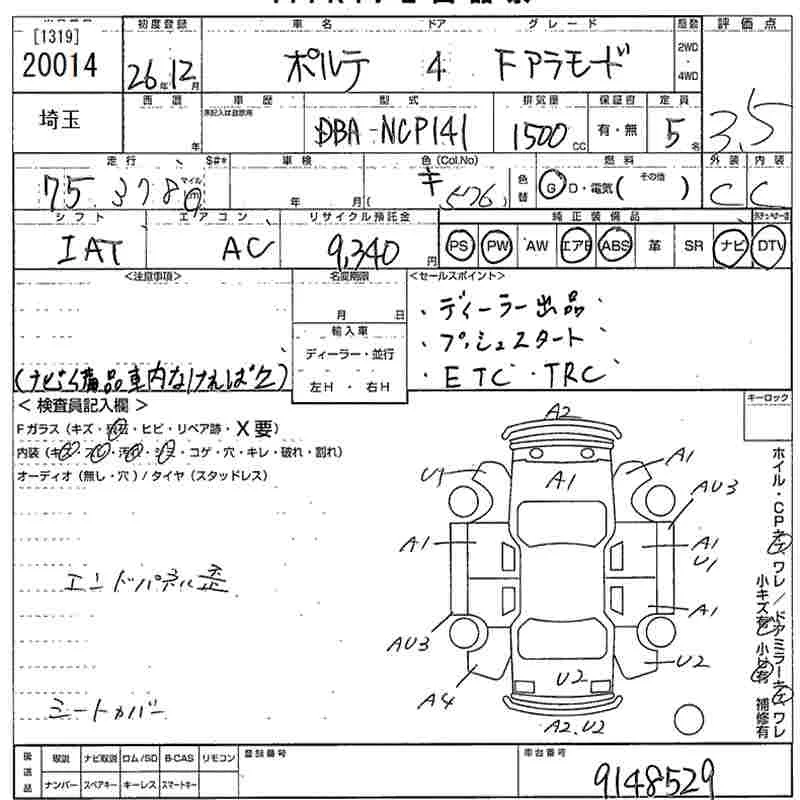 [1319]
20014
初度登録
車名
ドア
グレード
評価点
26年12月
ポルテ 4 Fアラモード
2WD
4WD
3.5
埼玉
年
車歴
型式
排気量
保証書
定員
DBA-NCP141
1500cc
有・無
5名
走行
$#*
車検
色(Col.No)
燃料
外装
内装
75378
マイル
km
年 月(
キ
576)
色替
G D・電気(その他)
C C
シフト
エアコン
リサイクル預託金
純正装備品
IAT
AC
9,340円
PS PW AW エアB ABS 革 SR ナビ DTV
<注意事項>
名変期限
<セールスポイント>
月 日
・ディーラー出品
輸入車
・プッシュスタート
ディーラー・並行
・ETC・TRC
左H・右H
(ナビ備品車内なければ欠)
<検査員記入欄>
キーロック
Fガラス(キズ・飛石・ヒビ・リペア跡・X要)
内装(キズ・スレ・汚れ・シミ・コゲ・穴・キレ・破れ・割れ)
オーディオ(無し・穴)/タイヤ(スタッドレス)
A2
A1
U1
A1
AU3
A1
A1
U1
A1
AU3
A4
U2
U2
A2.U2
エンドパネル歪
シートカバー
ホイル・CPキズ ワレ/ドアミラーキズ ワレ
小キズ有 小凹有 補修有
後送品
取説 ナビ取説 ロム/SD B-CAS リモコン
ナンバー スペアキー キーレス スマートキー
登録番号
車台番号
9148529